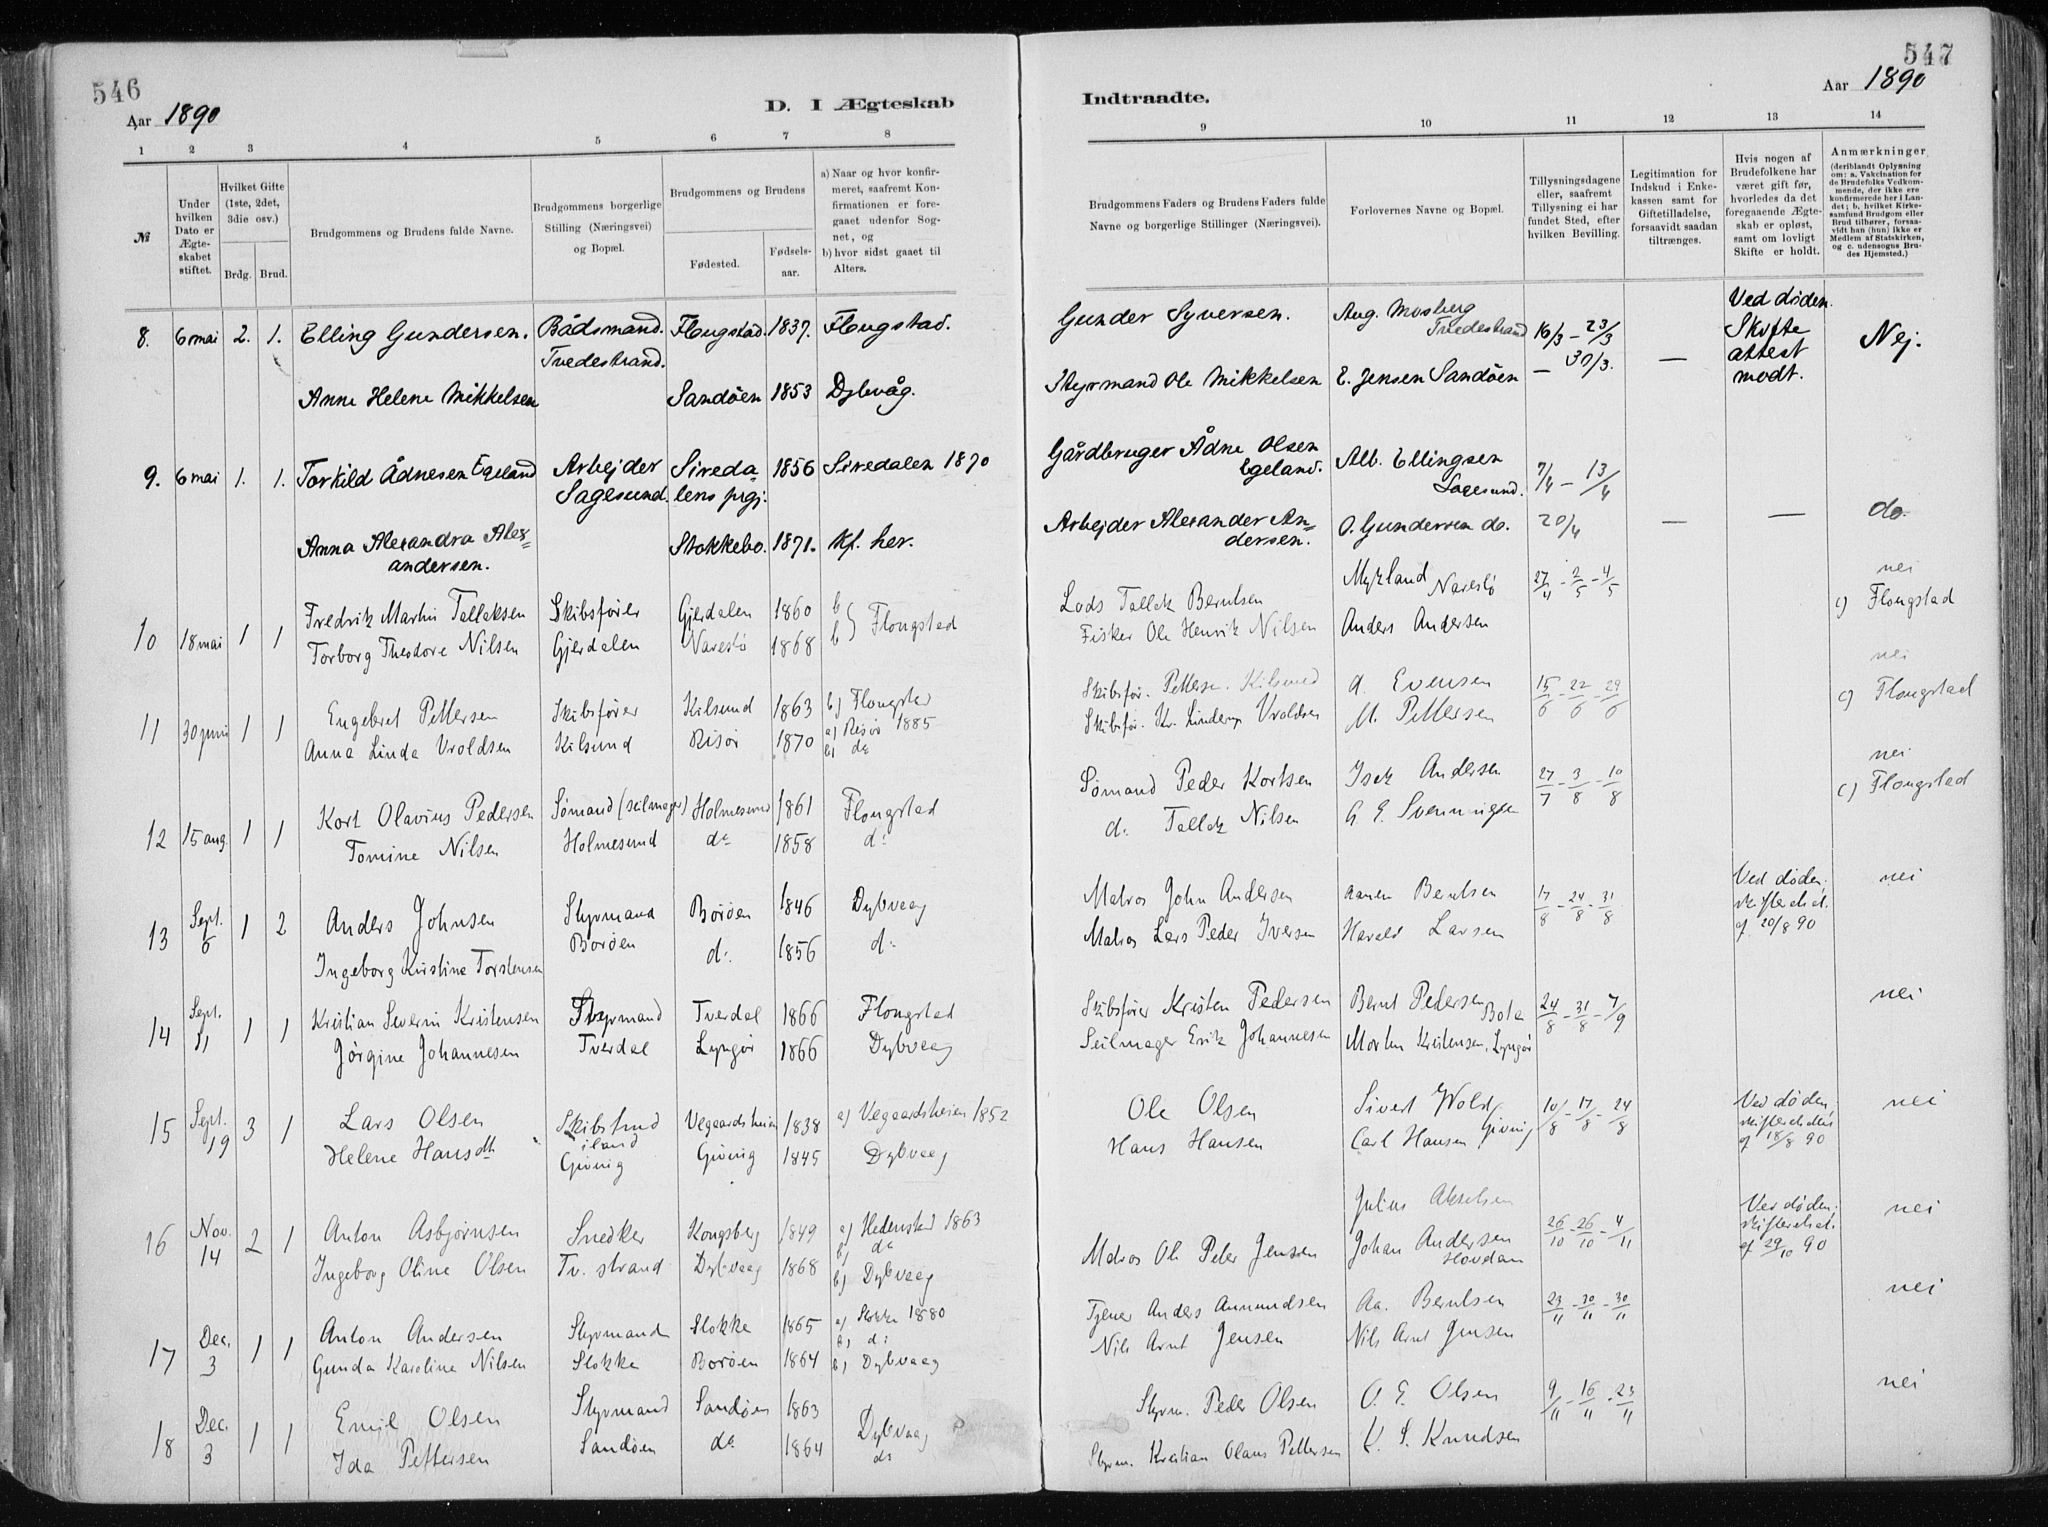 546
Aar 1890
D. I Ægteskab
1 2 3 4 5 6 7 8
№
Under hvilken Dato er Ægteskabet stiftet.
Hvilket Gifte (1ste, 2det, 3die osv.)
Brdg. Brud.
Brudgommens og Brudens fulde Navne.
Brudgommens borgerlige Stilling (Næringsvei) og Bopæl.
Brudgommens og Brudens
Fødested. Fødselsaar.
a) Naar og hvor konfirmeret, saafremt Konfirmationen er foregaaet udenfor Sognet, og
b) hvor sidst gaaet til Alters.
8. 6 mai 2. 1. Elling Gundersen. Bådsmand. Flougstad. 1837. Flougstad.
Tvedestrand.
Anne Helene Mikkelsen Sandøen 1853 Dybvåg.
9. 6 mai 1. 1. Torkild Ådnesen Egeland Arbejder Sireda 1856 Siredalen 1870
Sagesund. lens prgj.
Anna Alexandra Alex= Stokkebo. 1871. Kf. her.
andersen.
10 18 mai 1 1 Fredrik Martin Tallaksen Skibsfører Gjerdalen 1860 b) Flougstad
Torborg Theodore Nilsen Gjerdalen Narestø 1868 b)
11 30 juni 1 1 Engebret Pettersen Skibsfører Kilsund 1863 b) Flougstad
Anna Linda Vroldsen Kilsund Risør 1870 a) Risør 1885
b) do
12 15 aug. 1 1 Kort Olavius Pedersen Sømand (seilmager) Holmesund 1861 Flougstad
Tomine Nilsen Holmesund do 1858 do
13 Sept. 6 1 2 Anders Johnsen Styrmand Borøen 1846 Dybvaag
Ingeborg Kirstine Torstensen Borøen do. 1856 do
14 Sept. 11 1 1 Kristian Severin Kristensen Styrmand Tverdal 1866 Flougstad
Jørgine Johannesen Tverdal Lyngør 1866 Dybvaag
15 Sept. 19 3 1 Lars Olsen Skibstmd Vegaardsheien 1838 a) Vegaardsheien 1852
Helene Hansdtt iland
Givvig Givvig 1845 Dybvaag
16 Nov. 14 2 1 Anton Asbjørnsen Snedker Kongsberg 1849 a) Hedenstad 1863
b) do
Ingeborg Oline Olsen Tv. strand Dybvaag 1868 b) Dybvaag
17 Dec. 3 1 1 Anton Andersen Styrmand Stokke 1865 a) Stokke 1880
b) do
Gunda Karoline Nilsen Stokke Borøen 1864 b) Dybvaag
18 Dec. 3 1 1 Emil Olsen Styrmand Sandøen 1863 Dybvaag
Ida Pettersen Sandøen do 1864 do
547
Indtraadte.
Aar 1890
9 10 11 12 13 14
Brudgommens Faders og Brudens Faders fulde Navne og borgerlige Stillinger (Næringsvei).
Forlovernes Navne og Bopæl.
Tillysningsdagene eller, saafremt Tillysning ei har fundet Sted, efter hvilken Bevilling.
Legitimation for Indskud i Enkekassen samt for Giftetilladelse, forsaavidt saadan tiltrænges.
Hvis nogen af Brudefolkene har været gift før, hvorledes da det foregaaende Ægteskab er opløst, samt om lovligt Skifte er holdt.
Anmærkninger
(deriblandt Oplysning om: a. Vakcination for de Brudefolks Vedkommende, der ikke ere konfirmerede her i Landet; b. hvilket Kirkesamfund Brudgom eller Brud tilhører, forsaavidt han (hun) ikke er Medlem af Statskirken, og c. udensogns Brudes Hjemsted.)
Gunder Syversen. Aug. Mosberg Tvedestrand 16/3 - 23/3 Ved døden. Skifte attest modt. Nej.
Styrmand Ole Mikkelsen E. Jensen Sandøen - 30/3. —
Gårdbruger Ådne Olsen Egeland. Alb. Ellingsen Sagesund. 7/4 - 13/4
Arbejder Alexander An= O. Gundersen do. 20/4 — — do.
dersen.
Lods Tallak Berntsen Mykland Narestø 27/4 - 2/5 - 4/5 nei
Fisker Ole Henrik Nilsen Anders Andersen c) Flougstad
Skibsfør. Pettersen. Kilsund A. Evensen 15/6 - 22/6 - 29/6 nei
Skibsfør. Kr. Linderup Vroldsen M. Pettersen c) Flougstad
Sømand Peder Kortsen Isak Andersen 27/7 - 3/8 - 10/8 nei
do Tallak Nilsen G E. Svenningsen c) Flougstad
Matros John Andersen Aanen Berntsen 17/8 - 24/8 - 31/8 Ved døden, nei
Matros Lars Peder Iversen Harald Larsen skifteattest. af 20/8 90
Skibsfører Kristen Pedersen Bernt Pedersen Bota 24/8 - 31/8 - 7/9 nei
Seilmager Erik Johannesen Morten Kristensen, Lyngør
Ole Olsen Sivert Wold 10/8 - 17/8 - 24/8 Ved døden, nei
Hans Hansen Carl Hansen Givvig skifteattest af 18/8 90
Julius Akselsen
Matros Ole Peter Jensen Johan Andersen Hovdan 26/10 - 26/10 - 4/11 Ved døden; skifteattest. af 29/10 90 nei
Tjener Anders Aanundsen Aa. Berntsen 23/11 - 30/11 - 30/11 nei
Nils Arnt Jensen Nils Arnt Jensen
Styrm. Peder Olsen O. E. Olsen 9/11 - 16/11 - 23/11 nei
Styrm. Kristian Olaus Pettersen K. S. Knudsen